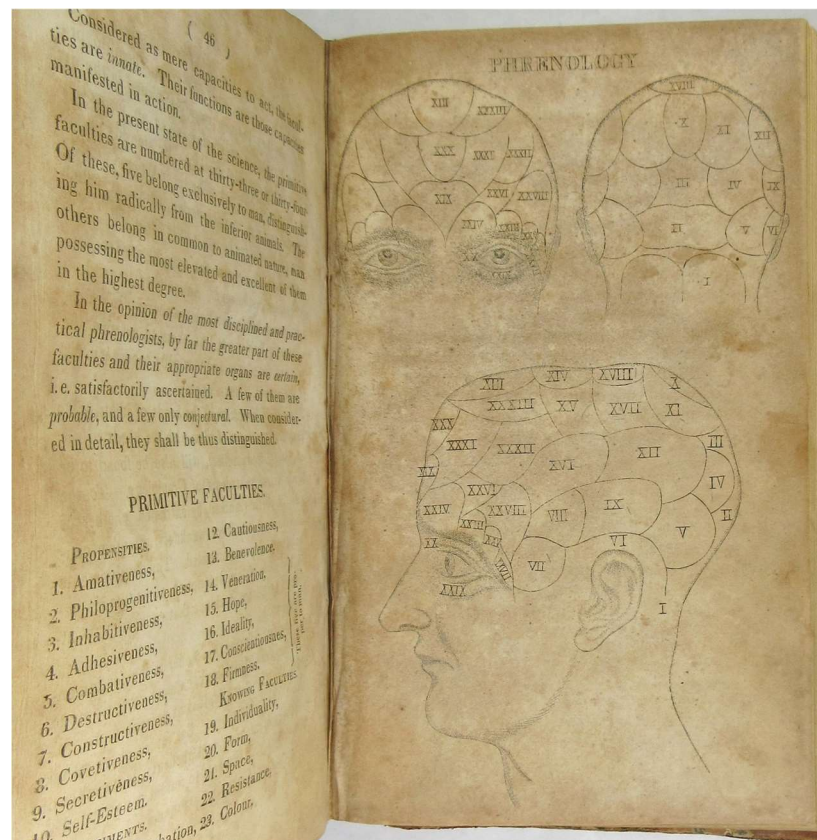 ( 46 )
Considered as mere capacities to act, the facul-
ties are innate. Their functions are those capacities
manifested in action.
In the present state of the science, the primitive
faculties are numbered at thirty-three or thirty-four.
Of these, five belong exclusively to man, distinguish-
ing him radically from the inferior animals. The
others belong in common to animated nature, man
possessing the most elevated and excellent of them
in the highest degree.
In the opinion of the most disciplined and prac-
tical phrenologists, by far the greater part of these
faculties and their appropriate organs are certain,
i.e. satisfactorily ascertained. A few of them are
probable, and a few only conjectural. When consider-
ed in detail, they shall be thus distinguished.
PRIMITIVE FACULTIES.
PROPENSITIES.
1. Amativeness,
2. Philoprogenitiveness,
3. Inhabitiveness,
4. Adhesiveness,
5. Combativeness,
6. Destructiveness,
7. Constructiveness,
8. Covetiveness,
9. Secretiveness,
10. Self-Esteem.
12. Cautiousness,
13. Benevolence,
14. Veneration,
15. Hope,
16. Ideality,
17. Conscientiousnes,
18. Firmness.
These five are
KNOWING FACULTIES.
19. Individuality,
20. Form,
21. Space,
22. Resistance,
23. Colour,
PHRENOLOGY
XIII XXXIII
XXX XXXI XXXII
XIX XXVI XXVIII
XXIV XXIII
XX
XVIII
X XI XII
III IV IX
II V VI
I
XIII XIV XVIII X
XXXIII XV XVII XI
XXX
XXXI XXXII XVI XII III
XIX IV
XXVI
XXIV XXVIII VIII IX II
XXIII V
XX VI
VII
XXIX
I